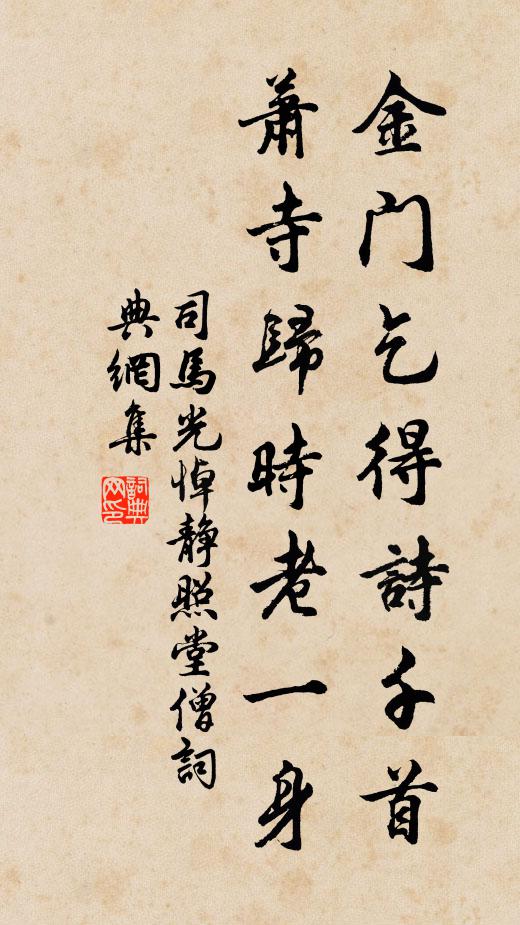 金门乞得詩千首
蕭寺歸時老一身
司馬光悼静照堂僧詞
典網集
詞典網印